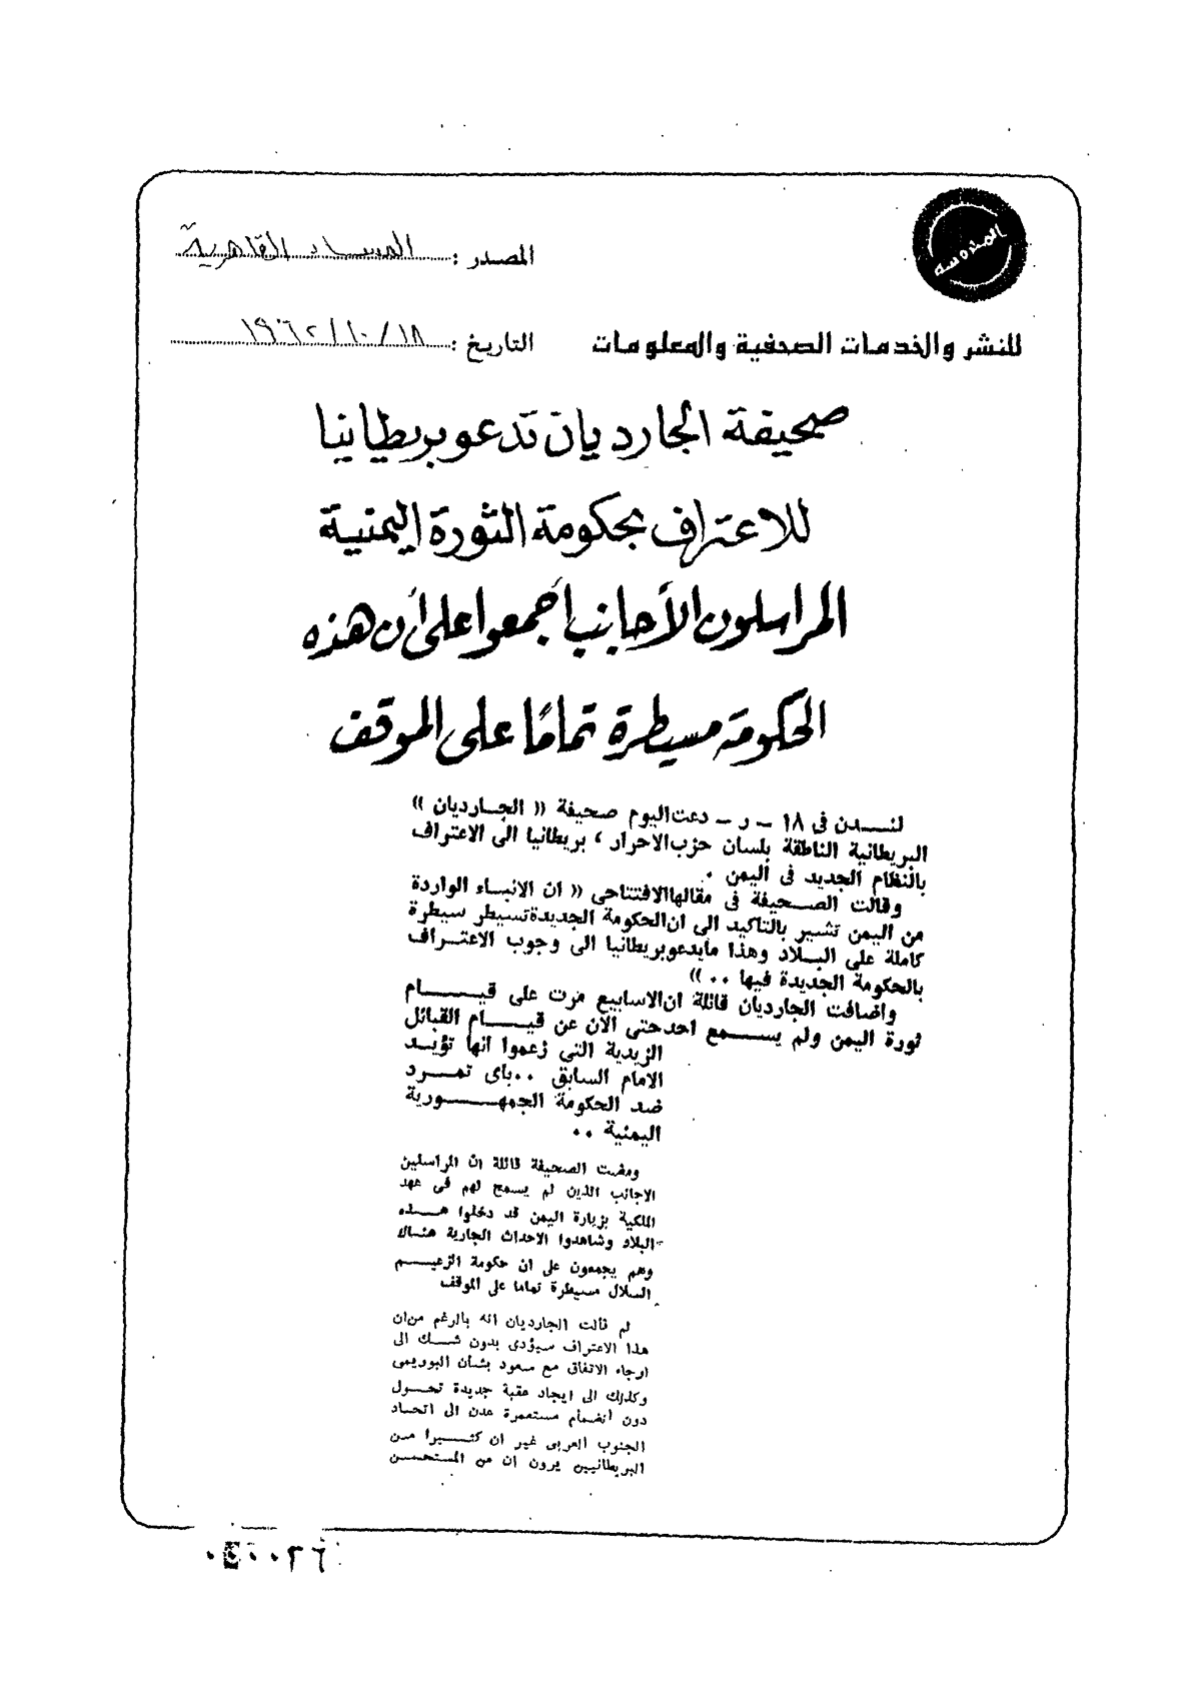 المصدر : المساء القاهرية
للنشر والخدمات الصحفية والمعلومات
التاريخ : ١٩٦٢/١٠/١٨
صحيفة الجارديان تدعو بريطانيا
للاعتراف بحكومة الثورة اليمنية
المراسلون الأجانب أجمعوا على أن هذه
الحكومة مسيطرة تمامًا على الموقف
لنـــدن فى ١٨ - ر - دعت اليوم صحيفة (( الجارديان ))
البريطانية الناطقة بلسان حزب الاحرار ، بريطانيا الى الاعتراف
بالنظام الجديد فى اليمن .
وقالت الصحيفة فى مقالها الافتتاحى (( ان الانباء الواردة
من اليمن تشير بالتاكيد الى ان الحكومة الجديدة تسيطر سيطرة
كاملة على البلاد وهذا مايدعو بريطانيا الى وجوب الاعتراف
بالحكومة الجديدة فيها .. ))
واضافت الجارديان قائلة ان الاسابيع مرت على قيام
ثورة اليمن ولم يسمع احد حتى الان عن قيام القبائل
الزيدية التي زعموا انها تؤيد
الامام السابق .. باى تمرد
ضد الحكومة الجمهورية
اليمنية ..
ومضت الصحيفة قائلة ان المراسلين
الاجانب الذين لم يسمح لهم فى عهد
الملكية بزيارة اليمن قد دخلوا هذه
البلاد وشاهدوا الاحداث الجارية هناك
وهم يجمعون على ان حكومة الزعيم
السلال مسيطرة تماما على الموقف
ثم قالت الجارديان انه بالرغم من ان
هذا الاعتراف سيؤدى بدون شك الى
ارجاء الاتفاق مع سعود بشأن البوريمى
وكذلك الى ايجاد عقبة جديدة تحول
دون انضمام مستعمرة عدن الى اتحاد
الجنوب العربى غير ان كثيرا من
البريطانيين يرون ان من المستحسن